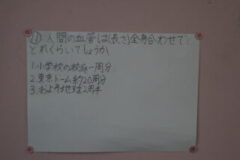 ① 人間の血管は(長さ)全身合わせて
どれくらいでしょうか
1.小学校の校庭一周分
2.東京ドーム約20周分
3.およそ地球2周半